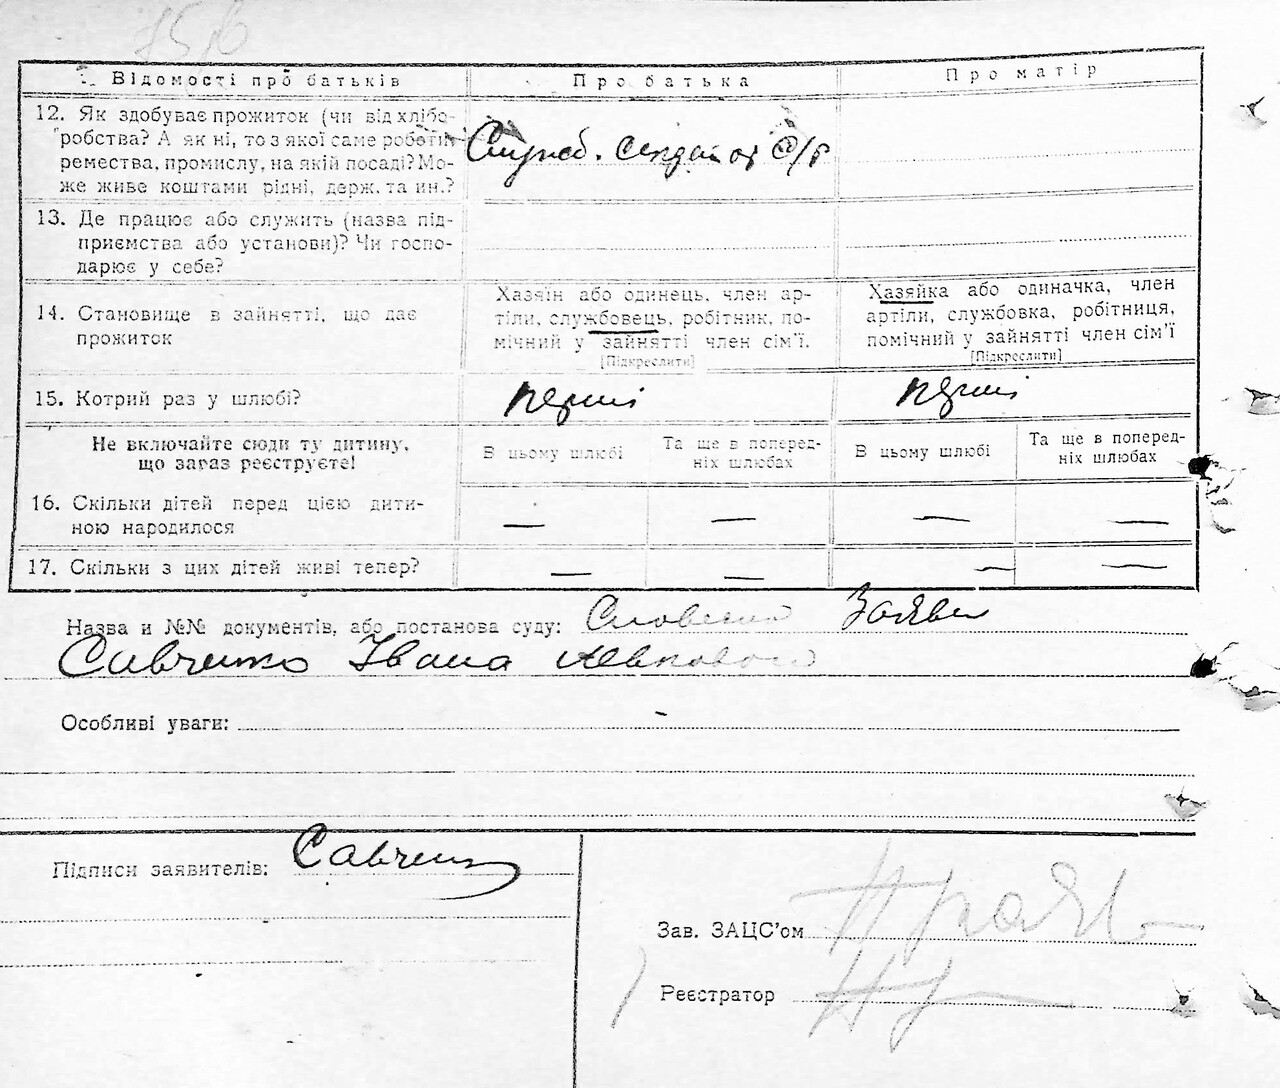 Відомості про батьків
Про батька
Про матір
12. Як здобуває прожиток (чи від хлібо-
робства? А як ні, то з якої саме роботи,
ремества, промислу, на якій посаді? Мо-
же живе коштами рідні, держ. та ин.?
Служб.
13. Де працює або служить (назва під-
приємства або установи)? Чи госпо-
дарює у себе?
14. Становище в зайнятті, що дає
прожиток
Хазяїн або одинець, член ар-
тіли, службовець, робітник, по-
мічний у зайнятті член сім'ї.
[Підкреслити]
Хазяйка або одиначка, член
артіли, службовка, робітниця,
помічний у зайнятті член сім'ї
[Підкреслити]
15. Котрий раз у шлюбі?
перший
перший
Не включайте сюди ту дитину,
що зараз реєструєте!
В цьому шлюбі
Та ще в поперед-
ніх шлюбах
В цьому шлюбі
Та ще в поперед-
ніх шлюбах
16. Скільки дітей перед цією дити-
ною народилося
— — — —
17. Скільки з цих дітей живі тепер?
— — — —
Назва и №№ документів, або постанова суду: Словесна Заява
Савченко Івана
Особливі уваги: -
Підписи заявителів: Савченко
Зав. ЗАЦС'ом
Реєстратор